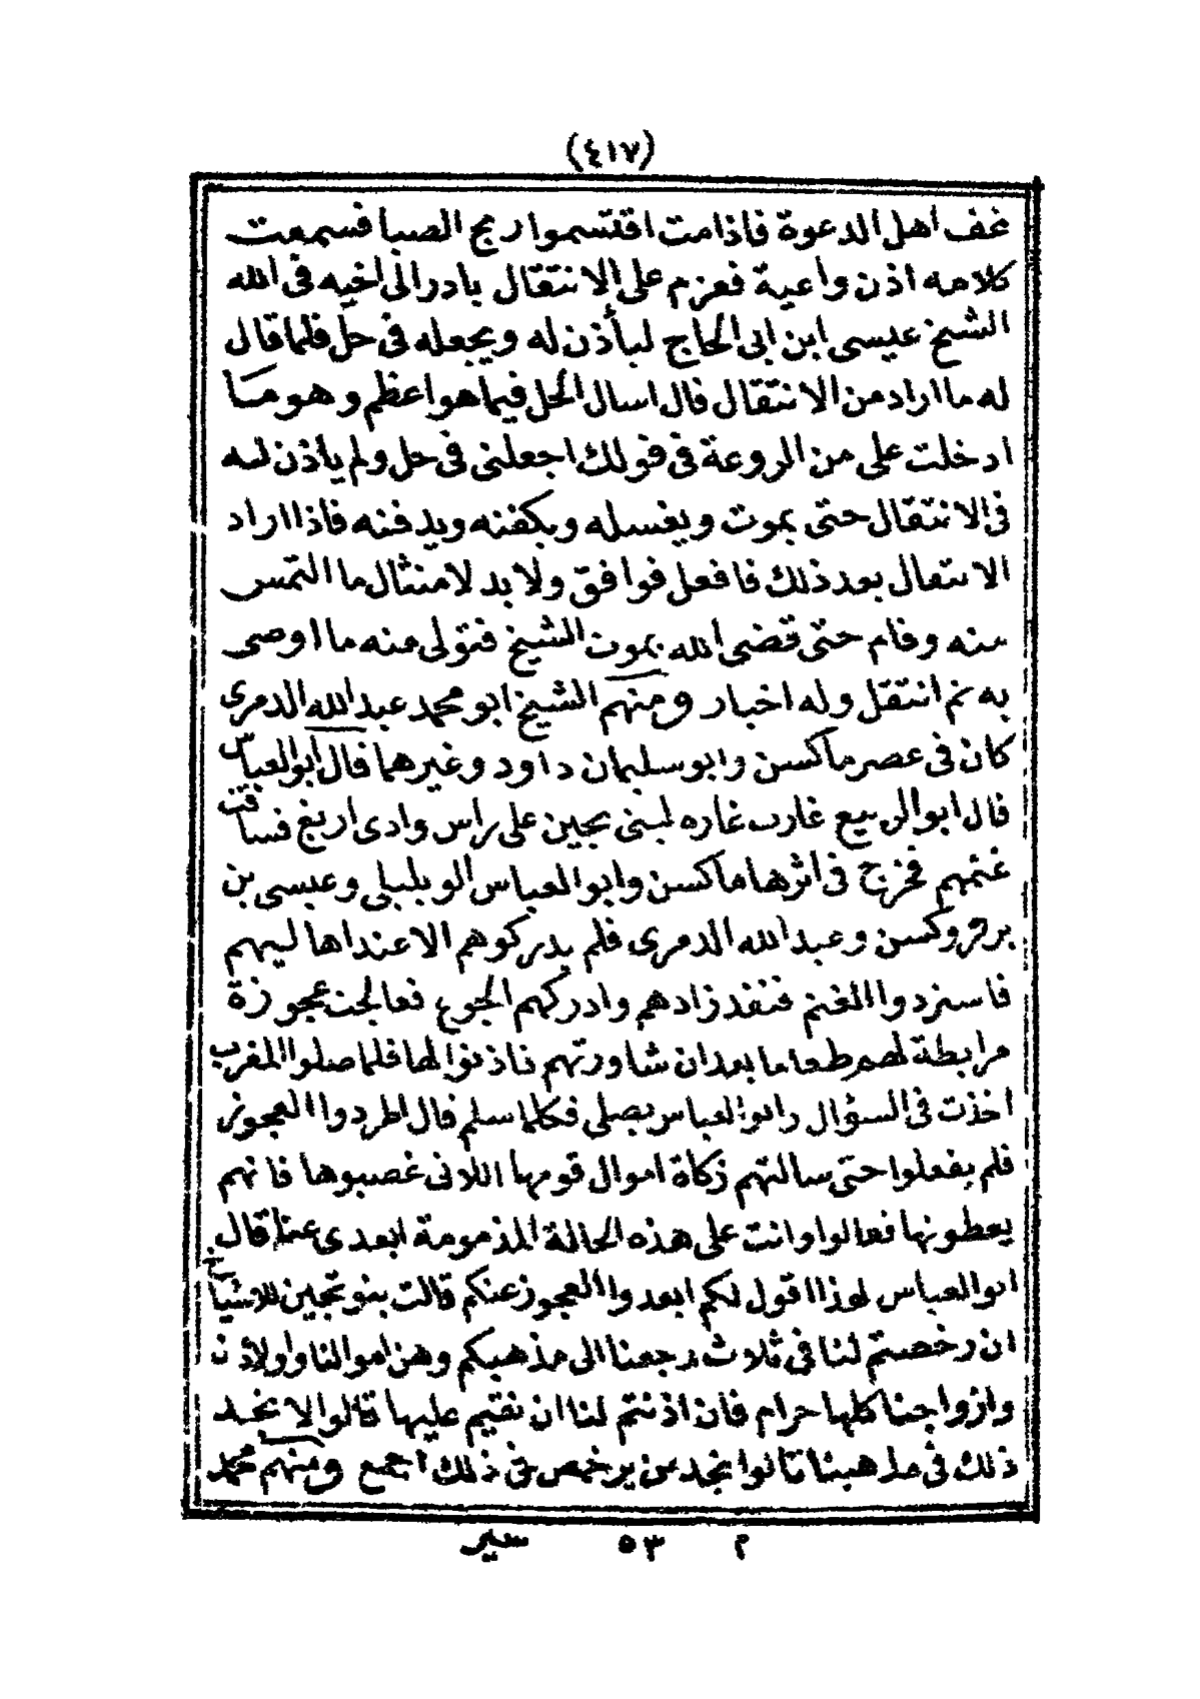 (٤١٧)
غف اهل الدعوة فاذا مت اقتسموا ريح الصبا فسمعت
كلامه اذن واعية فعزم على الانتقال بادر الى اخيه فى الله
الشيخ عيسى ابن ابى الحاج ليأذن له ويجعله فى حل فلما قال
له ما اراد من الانتقال قال اسال الحل فيما هو اعظم وهو ما
ادخلت على من الروعة فى قولك اجعلنى فى حل ولم ياذن له
فى الانتقال حتى يموت ويغسله ويكفنه ويدفنه فاذا اراد
الانتقال بعد ذلك فافعل فوافق ولا بد لامتثال ما التمس
منه وقام حتى قضى الله بموت الشيخ فتولى منه ما اوصى
به ثم انتقل وله اخبار ومنهم الشيخ ابو محمد عبد الله الدمرى
كان فى عصر ماكسن وابو سليمان داود وغيرهما قال ابو العباس
قال ابو الربيع غارت غاره لبنى يجين على راس وادى اريغ فساقت
غنمهم فخرج فى اثرها ماكسن وابو العباس الويليلى وعيسى بن
يرزوكسن وعبد الله الدمرى فلم يدركوهم الا عند اهاليهم
فاستردوا الغنم فنفد زادهم وادركهم الجوع فعالجت عجوزة
مرابطة لهم طعاما بعد ان شاورتهم فاذنوا لها فلما صلوا المغرب
اخذت فى السؤال وابو العباس يصلى فكلما سلم قال اطردوا العجوز
فلم يفعلوا حتى سالتهم زكاة اموال قومها اللاتى غصبوها فانهم
يعطونها فقالوا وانت على هذه الحالة المذمومة ابعدى عنا قال
ابو العباس لهوذا اقول لكم ابعدوا العجوز عنكم قالت بنو تجين للاشياخ
ان رخصتم لنا فى ثلاث رجعنا الى مذهبكم وهن اموالنا واولادنا
وازواجنا كلها حرام فان اذنتم لنا ان نقيم عليها قالوا لا نجد
ذلك فى مذهبنا قالوا نجد من يرخص فى ذلك اجمع ومنهم محمد
م ٥٣ سير